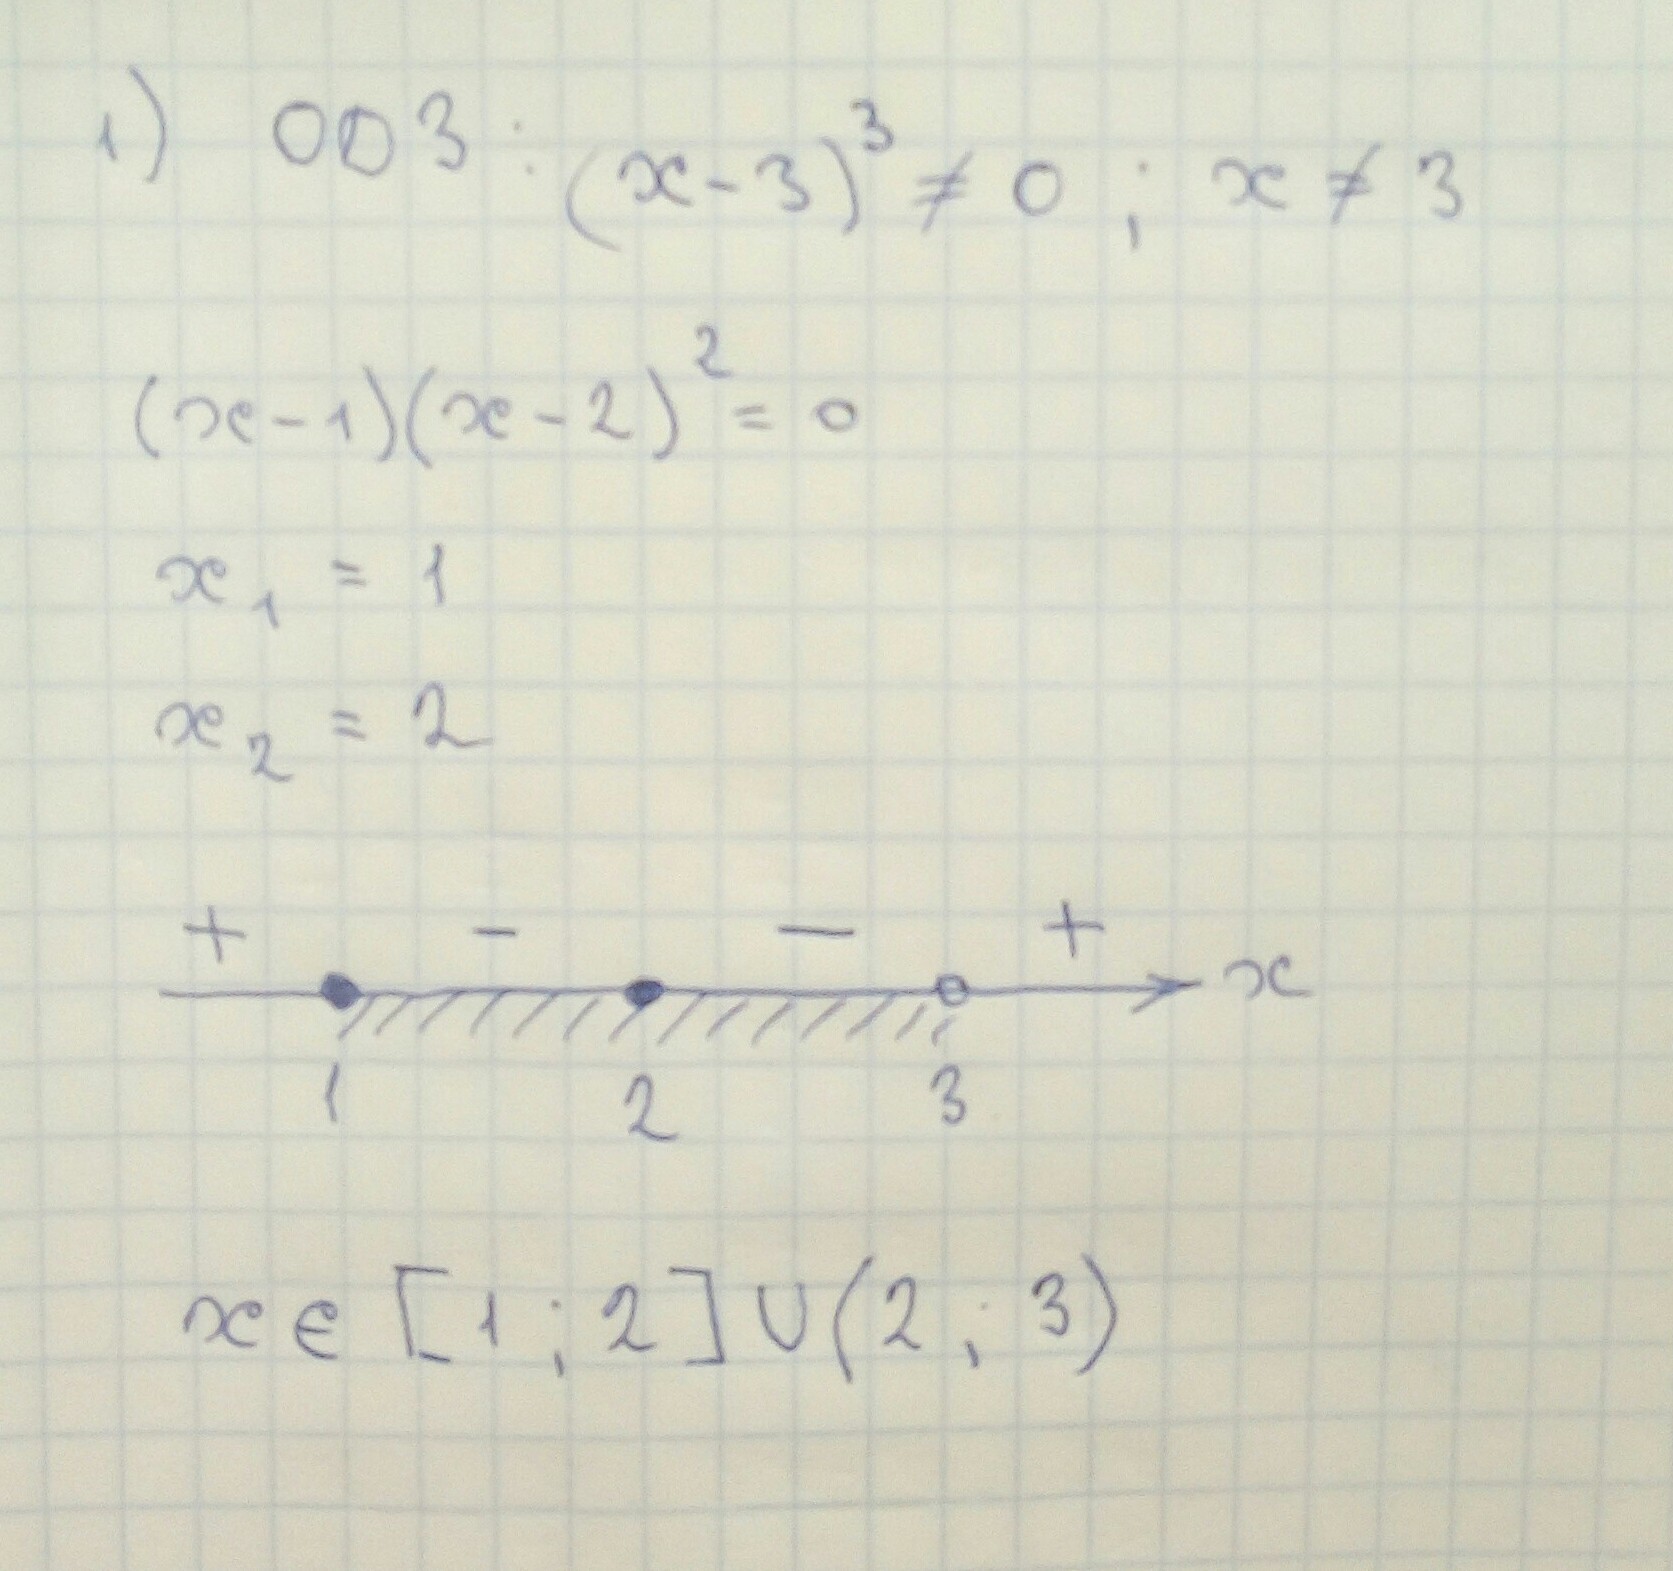 1) ОДЗ : (x-3)³ ≠ 0 ; x ≠ 3
(x-1)(x-2)² = 0
x₁ = 1
x₂ = 2
+ - - + x
1 2 3
x ∈ [1 ; 2] ∪ (2 ; 3)